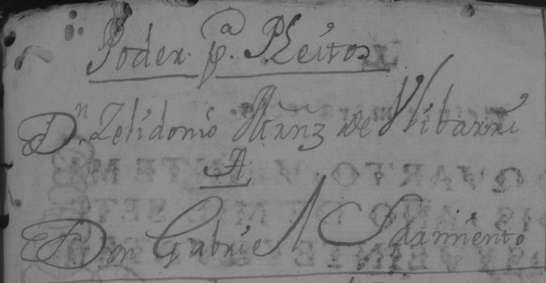 Poder pª. Pleitos
Dn Zelidonio Mrnz de Vlibarri
A
Don Gabriel Sarmiento